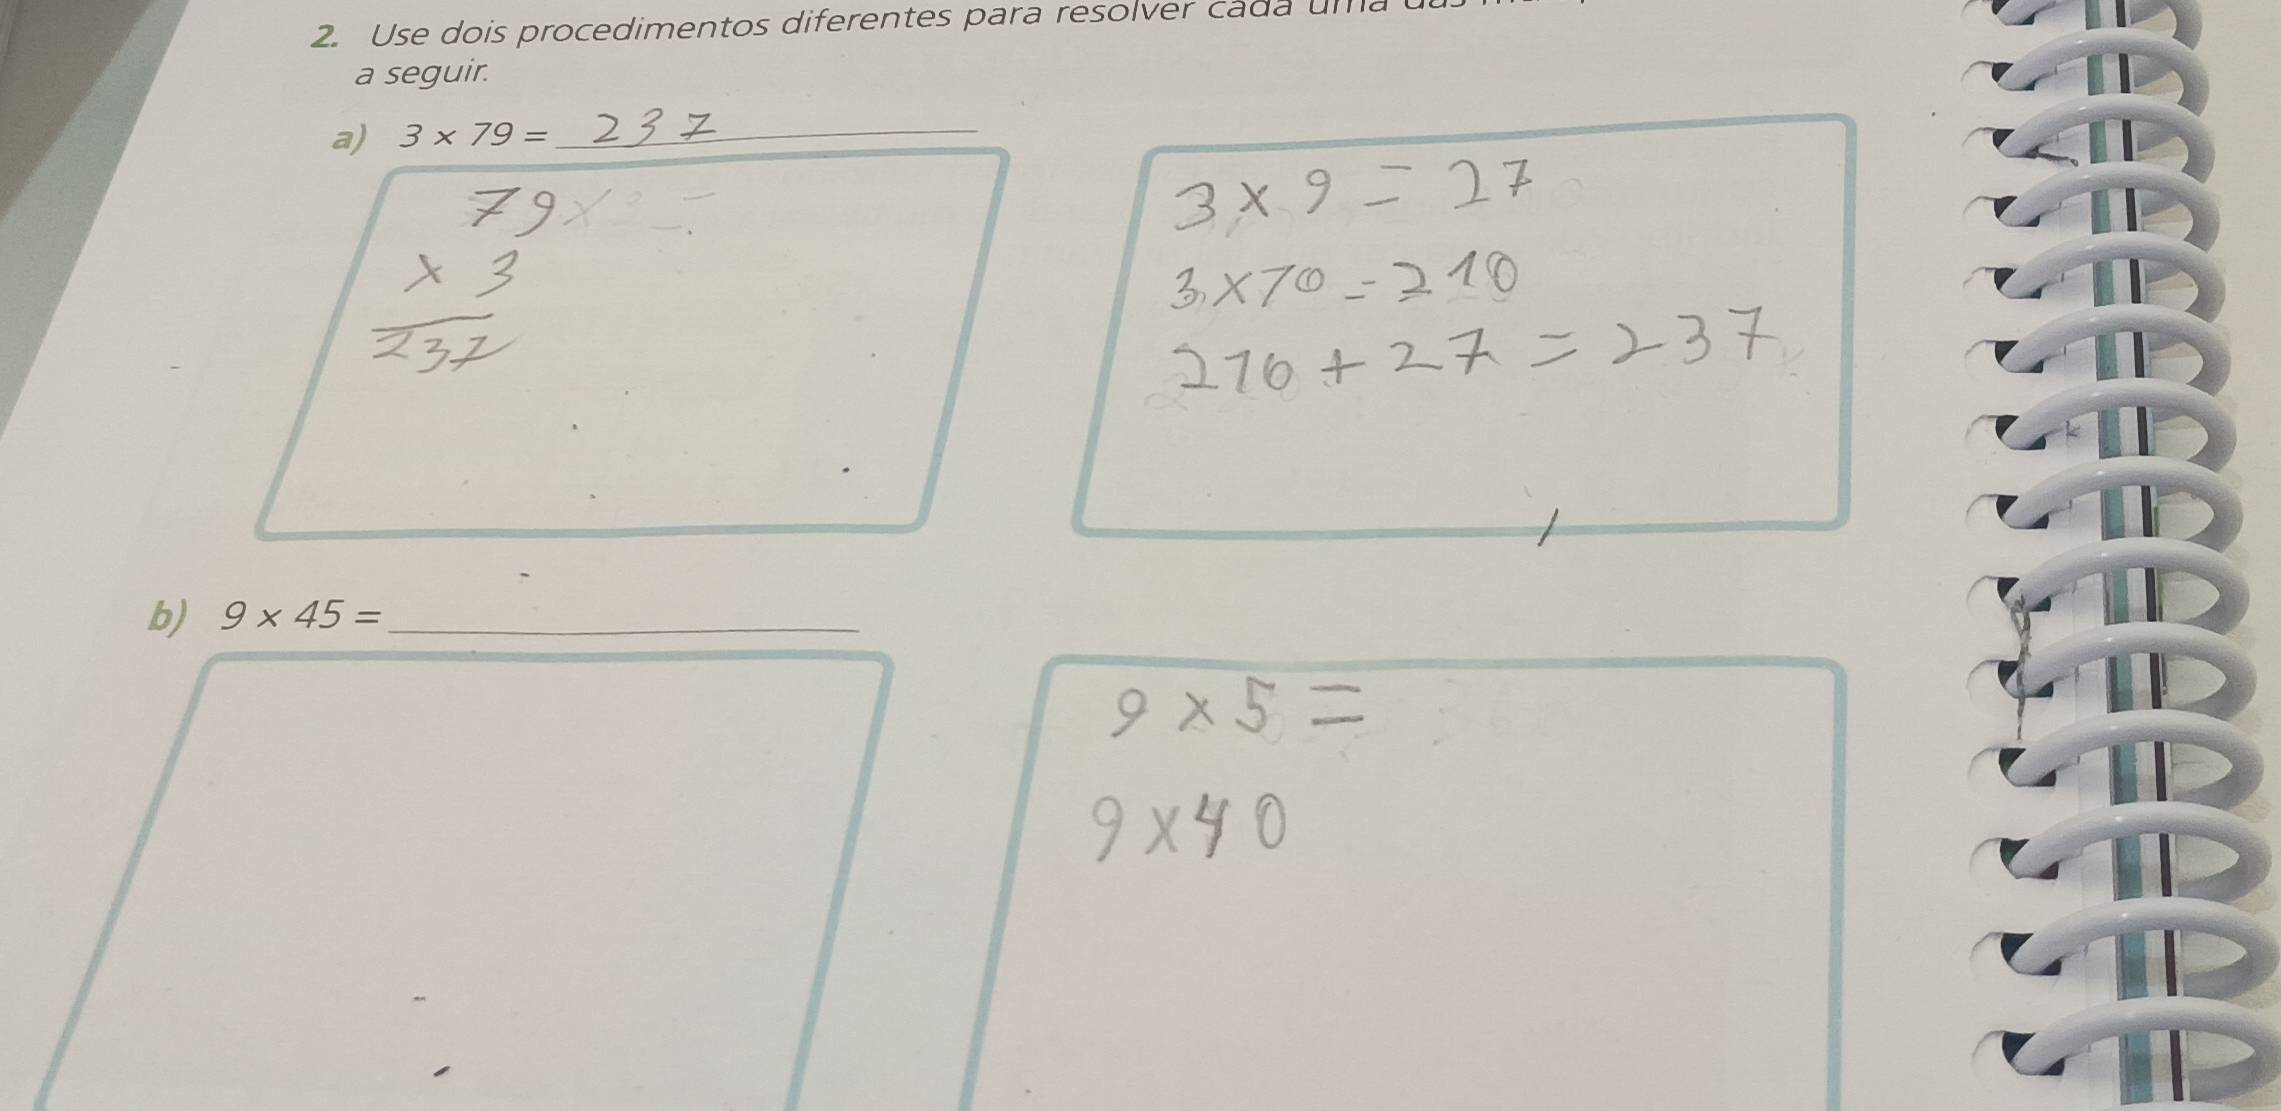 2. Use dois procedimentos diferentes para resolver cada uma
a seguir.
a) 3 × 79 = 237
79
× 3
237
3 × 9 = 27
3 × 70 = 210
210 + 27 = 237
b) 9 × 45 =
9 × 5 =
9 × 40